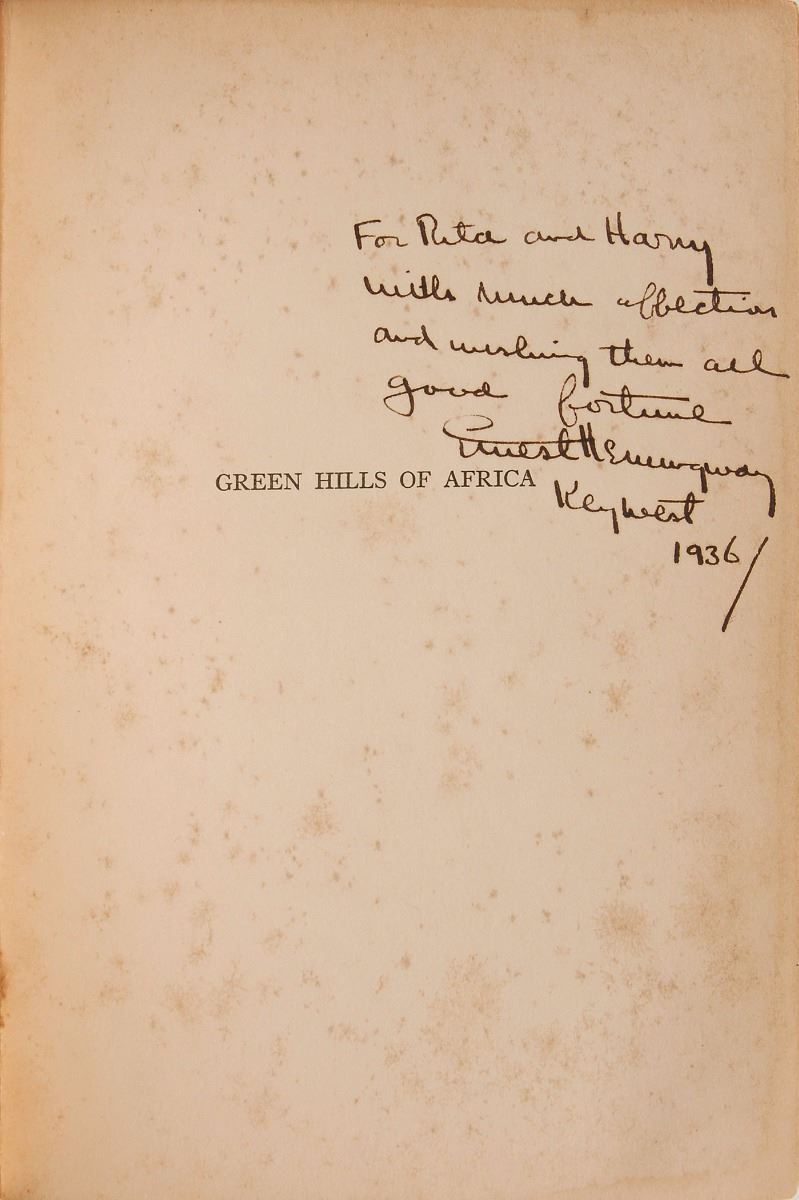 For Rita and Harry
with much affection
and wishing them all
good fortune
Ernest Hemingway
GREEN HILLS OF AFRICA
Key West
1936/